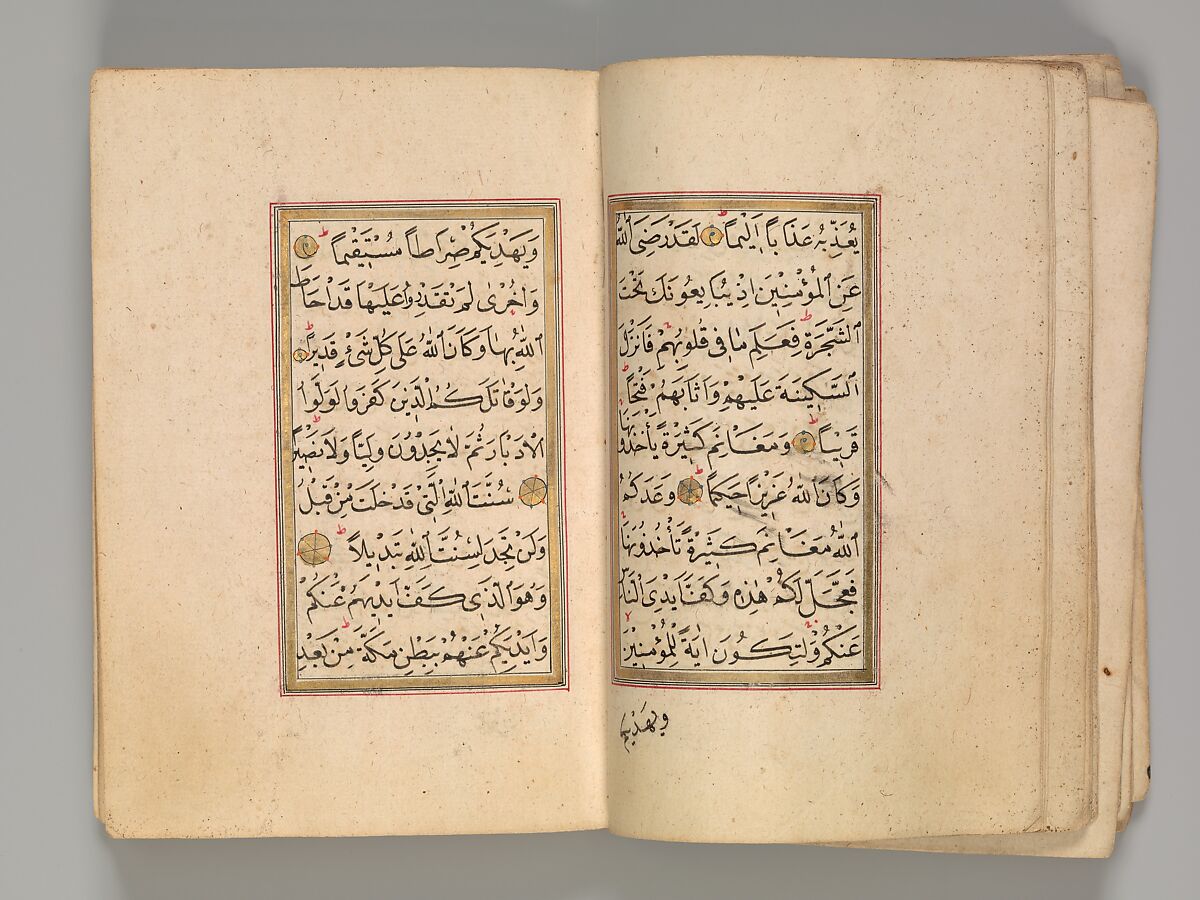 يُعَذِّبْهُ عَذَابًا اَلِيمًا لَقَدْ رَضِىَ اللّٰهُ
عَنِ الْمُؤْمِنِينَ اِذْ يُبَايِعُونَكَ تَحْتَ
الشَّجَرَةِ فَعَلِمَ مَا فِى قُلُوبِهِمْ فَاَنْزَلَ
السَّكِينَةَ عَلَيْهِمْ وَاَثَابَهُمْ فَتْحًا
قَرِيبًا وَمَغَانِمَ كَثِيرَةً يَأْخُذُونَهَا
وَكَانَ اللّٰهُ عَزِيزًا حَكِيمًا وَعَدَكُمُ
اللّٰهُ مَغَانِمَ كَثِيرَةً تَأْخُذُونَهَا
فَعَجَّلَ لَكُمْ هٰذِهِ وَكَفَّ اَيْدِىَ النَّاسِ
عَنْكُمْ وَلِتَكُونَ اٰيَةً لِلْمُؤْمِنِينَ
ويهديكم
وَيَهْدِيَكُمْ صِرَاطًا مُسْتَقِيمًا
وَاُخْرٰى لَمْ تَقْدِرُوا عَلَيْهَا قَدْ اَحَاطَ
اللّٰهُ بِهَا وَكَانَ اللّٰهُ عَلٰى كُلِّ شَىْءٍ قَدِيرًا
وَلَوْ قَاتَلَكُمُ الَّذِينَ كَفَرُوا لَوَلَّوُا
الْاَدْبَارَ ثُمَّ لَا يَجِدُونَ وَلِيًّا وَلَا نَصِيرًا
سُنَّتَ اللّٰهِ الَّتِى قَدْ خَلَتْ مِنْ قَبْلُ
وَلَنْ تَجِدَ لِسُنَّتِ اللّٰهِ تَبْدِيلًا
وَهُوَ الَّذِى كَفَّ اَيْدِيَهُمْ عَنْكُمْ
وَاَيْدِيَكُمْ عَنْهُمْ بِبَطْنِ مَكَّةَ مِنْ بَعْدِ